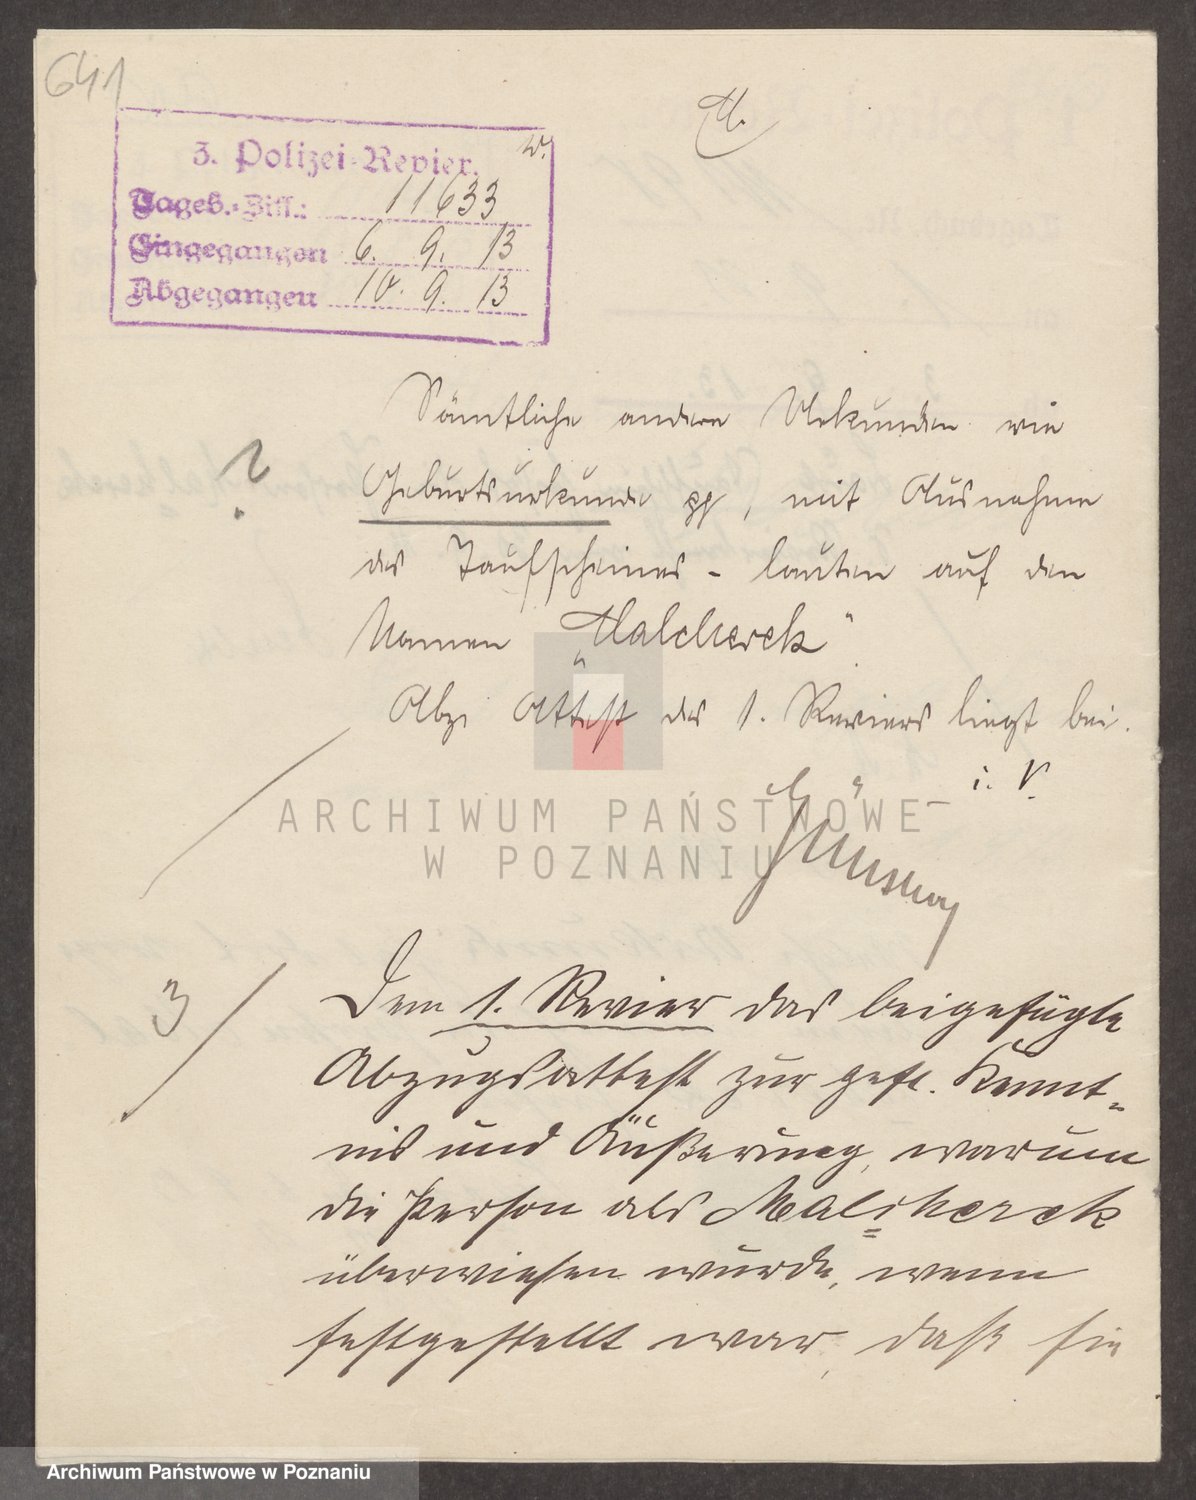 641
M.
3. Polizei-Revier. W.
Tageb.-Ziff.: 11633
Eingegangen 6. 9. 13
Abgegangen 10. 9. 13
Sämtliche andere Urkunden wie
?
Geburtsurkunde pp, mit Ausnahme
des Taufscheines - lauten auf den
Namen „Malcherek"
Abz. Attest des 1. Reviers liegt bei.
i. V.
ARCHIWUM PAŃSTWOWE
W POZNANIU
3
Dem 1. Revier das beigefügte
Abzugsattest zur gefl. Kennt-
nis und Äußerung, warum
die Person als Malcherek
überwiesen wurde, wenn
festgestellt war, daß sie
Archiwum Państwowe w Poznaniu